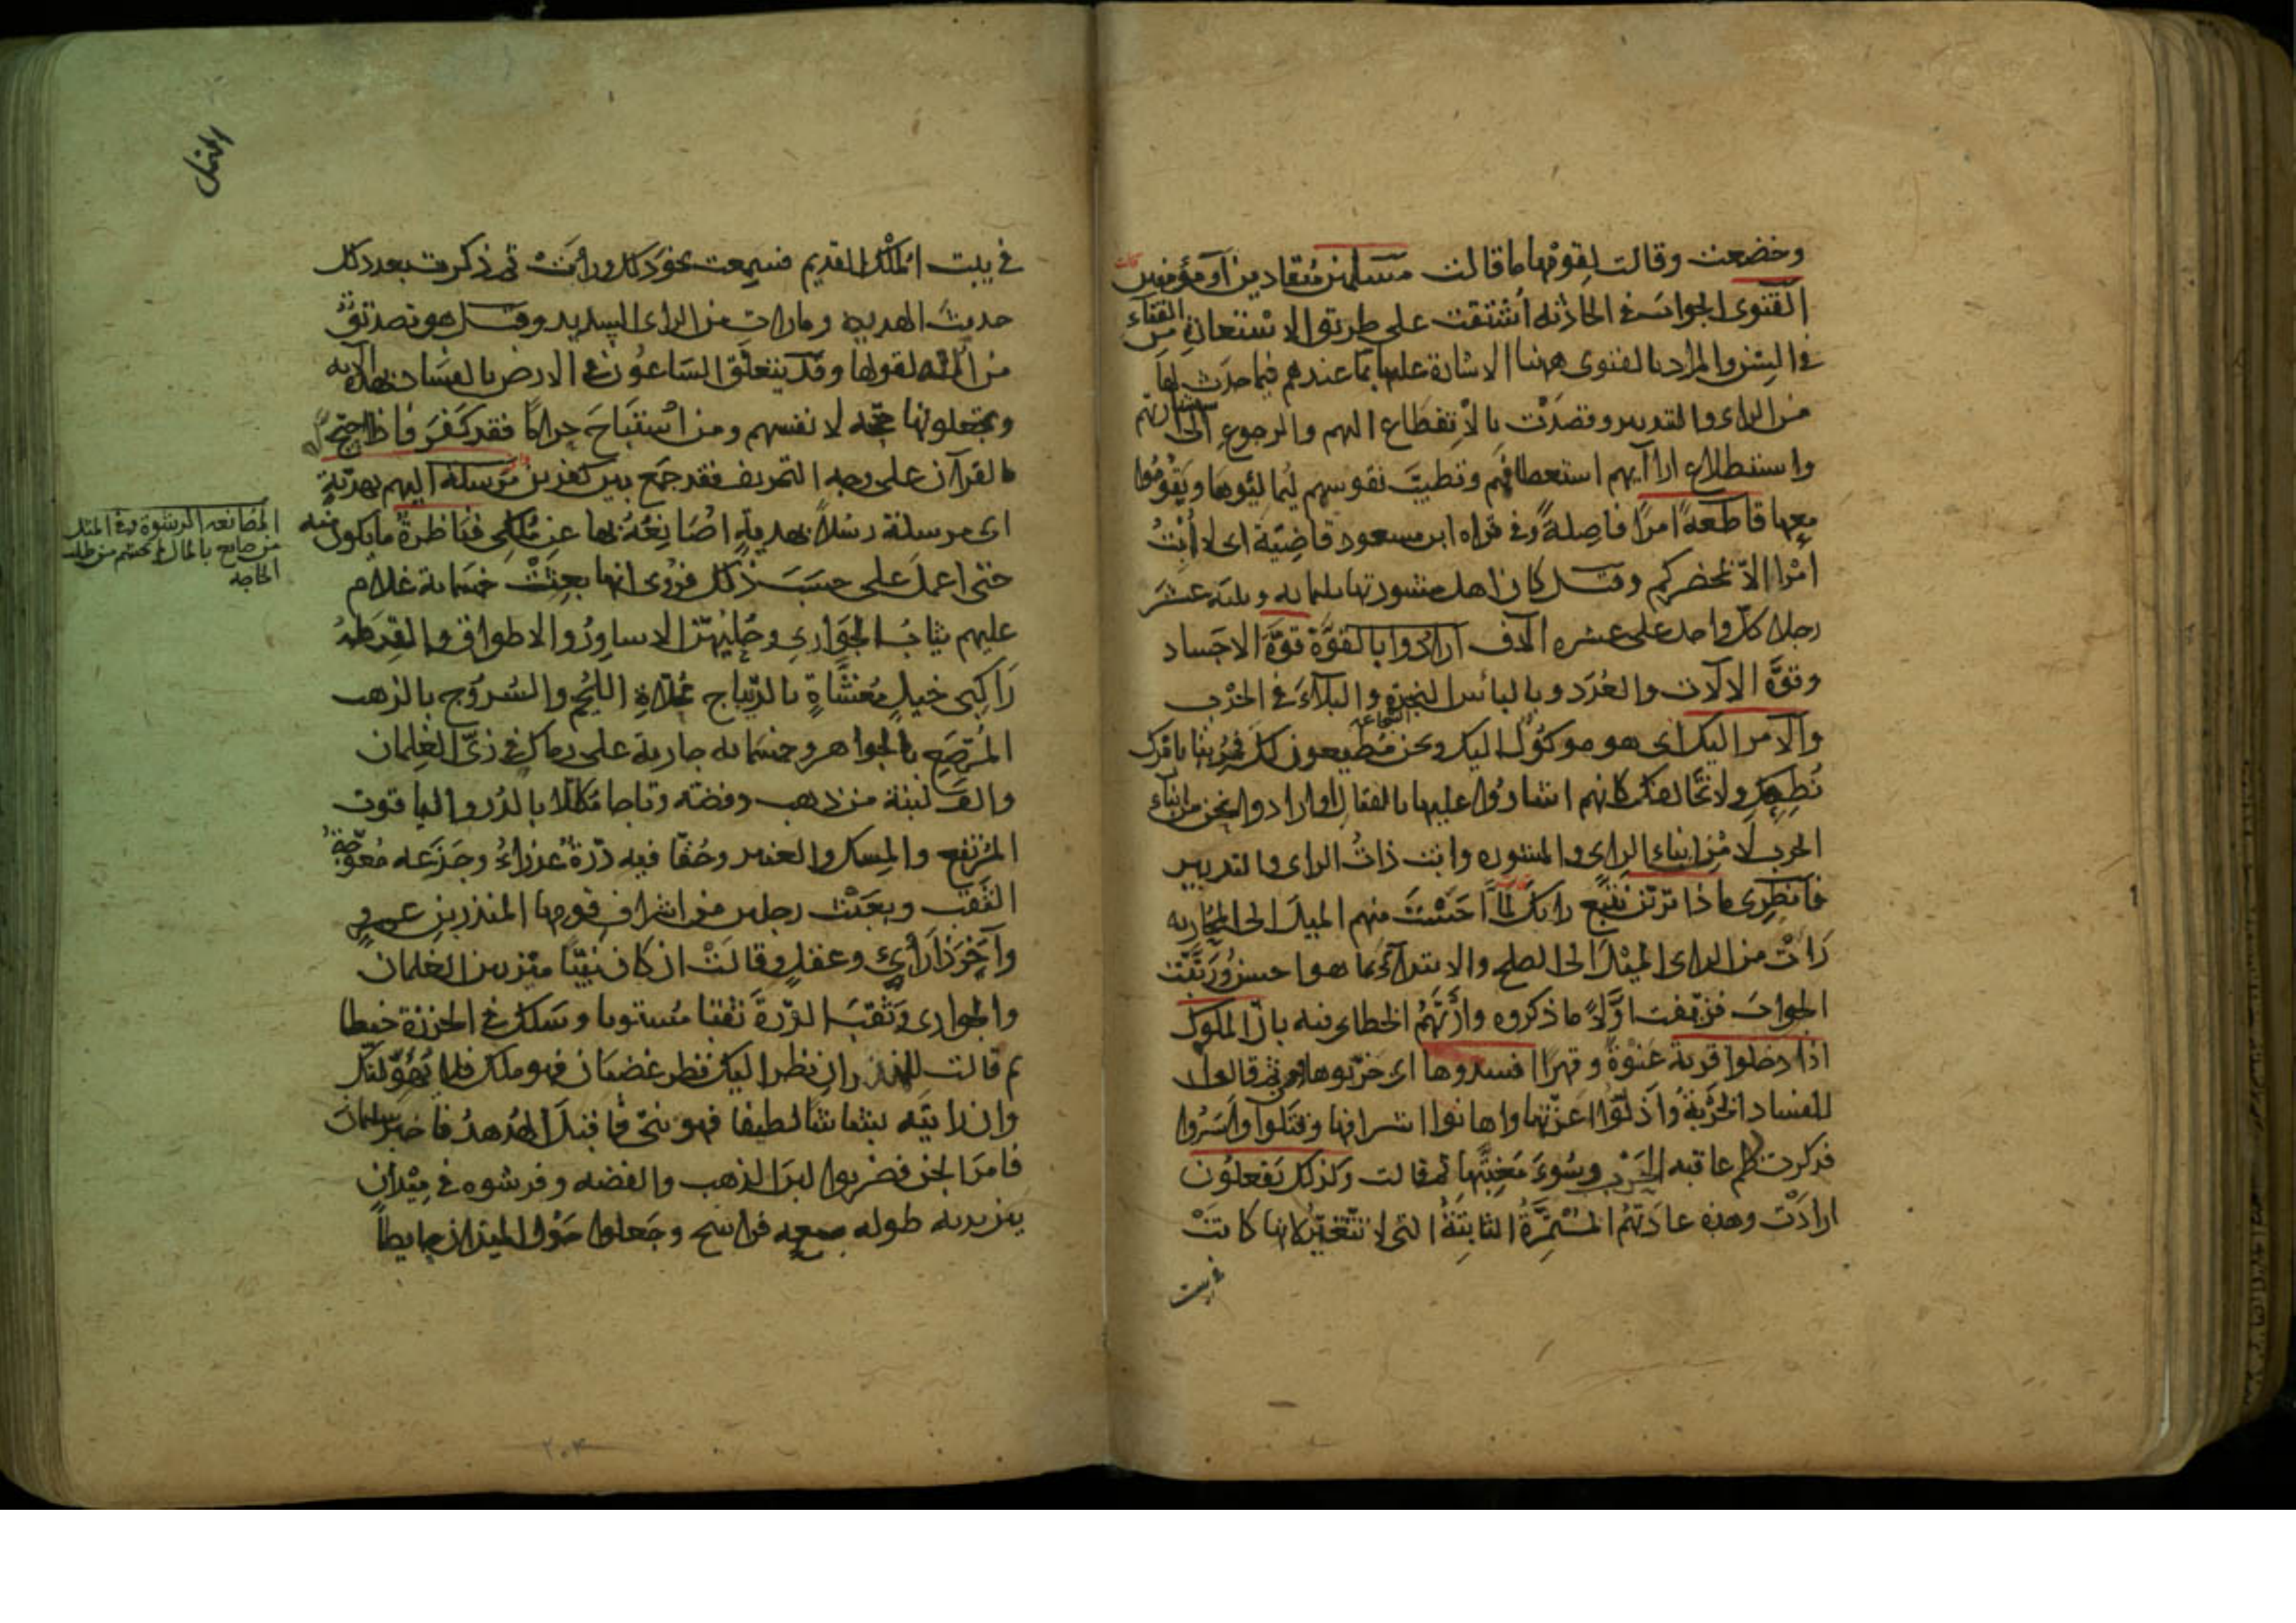 وخضعت وقالت لقومها ما قالت مسلمين منقادين او مؤمنين قالت
الفتوى الجواب في الحادثة اشتقت على طريق الاستعارة من الفتاء
في السن والمراد بالفتوى ههنا الاشارة عليها بما عندهم فيما حدث لها
من الراى والتدبير وقصدت بالانقطاع اليهم والرجوع الى استشارتهم
واستطلاع اراآيهم استعطافهم وتطييب نفوسهم ليمالئوها ويقوموا
معها قاطعة امرًا فاصلةً وفي قراه ابن مسعود قاضيّة اى لا أبتُّ
امْرا الّا بمحضركم وقيل كان اهل مشورتها ثلثمايه وثلثه عشر
رجلا كلّ واحد على عشره آلاف ارادوا بالقوّة قوّة الاجساد
وقوّة الالات والعُدَد وبالبأس النجدة والبلاءَ في الحرْب
الشجاعة
والامر اليك اى هو موكول اليك ونحن مطيعون لك فمرينا بامرك
نُطِعكِ ولا نخالفك كانهم اشاروا عليها بالقتال او ارادوا نحن من ابناء
الحرب لا مِن ابناء الراى والمشوره وانت ذاتُ الراى والتدبير
فانظرى ماذا ترين نتبع رايك لمّا احسّت منهم الميل الى المحاربه
رَاتْ من الراى الميْل الى الصلح والابتداء بما هو احسن ورتّبت
الجواب فزيّفت اوّلًا ما ذكروه وأرتْهُم الخطاء فيه بانّ الملوك
اذا دخلوا قرية عَنوةً وقهرًا افسدوها اى خرّبوها ومن ثم قالوا
للفساد الخُرْبةُ واذلّوا اعزّتها واهانوا اشرافها وقتلوا واَسَرُوا
فذكرت لهم عاقبه الحَرْب وسُوءَ مَغبّتها ثم قالت وكذلك يَفعلُون
ارادَتْ وهذه عادَتُهُم المسْتمرّةُ الثابِتةُ التى لا تتغيّر لانها كانتْ
في بيت
النمل
في بيت الملك القديم فسمِعت نحوَ ذلك ورأتْ ثم ذكرت بعد ذلك
حديثَ الهديه وما رات من الراى السديد وقيل هو تصديقٌ
من الله لقولها وقد يتعلّق السَاعُون في الارض بالفسَاد بهذه الآيه
ويجعلونها حجّه لانفسهم ومن اسْتبَاحَ حراما فقد كَفَرَ فاذا احتجّ له
بالقرآن على وجه التحريف فقد جمَع بين كفرين مرسلة اليهم بهديّةٍ
اى مرسلة رسُلًا بهديةٍ اصَانِعُهُ بها عن مُلكى فناظرةٌ ما يكون منه
حتى اعملَ على حسَبِ ذلك فروُى انها بعثتْ خمسماية غلام
عليهم ثيابُ الجوَارى وحُليُهنّ الاساوِرُ والاطواق والقِرَطه
رَاكبى خيلٍ مغشّاةٍ بالدّيباج محلّاة اللُجُم والسُروج بالذهب
المُرَصّع بالجواهر وخمسمايه جارية على رماك في زىّ الغلمان
والف لبنة من ذهب وفضه وتاجا مكللا بالدُر والياقوت
المُرتفع والمسك والعنبر وحُقّا فيه دُرّةٌ عَذراءُ وجَزَعه مُعوَجّةُ
الثقب وبعثت رجلين من اشراف قومها المنذر بن عمرو
وآخرَ ذا رَأىٍ وعقلٍ وقالتْ ان كان نبيّا ميّز بين الغلمان
والجوارى وثقَبَ الدُرّةَ ثقبًا مُستويا وسَلك في الخرزة خيطا
ثم قالت للمنذر ان نظر اليك نظر غضبَان فهو ملك فلا يهُولنّك
وان رايتَه بشاشا لطيفا فهو نبىّ فاقبلَ الهُدهدُ فاخبر سليمان
فامرَ الجن فضربوا لبنَ الذهب والفضه وفرشوه في مَيْدانٍ
بين يديه طوله سبعه فراسخ وجَعلوا حَوْل الميدان حايطًا
المصانعه الرشوة وفي المثل
من صانع بالمال لم يحتشم من طلب
الحاجه
٢٠٣